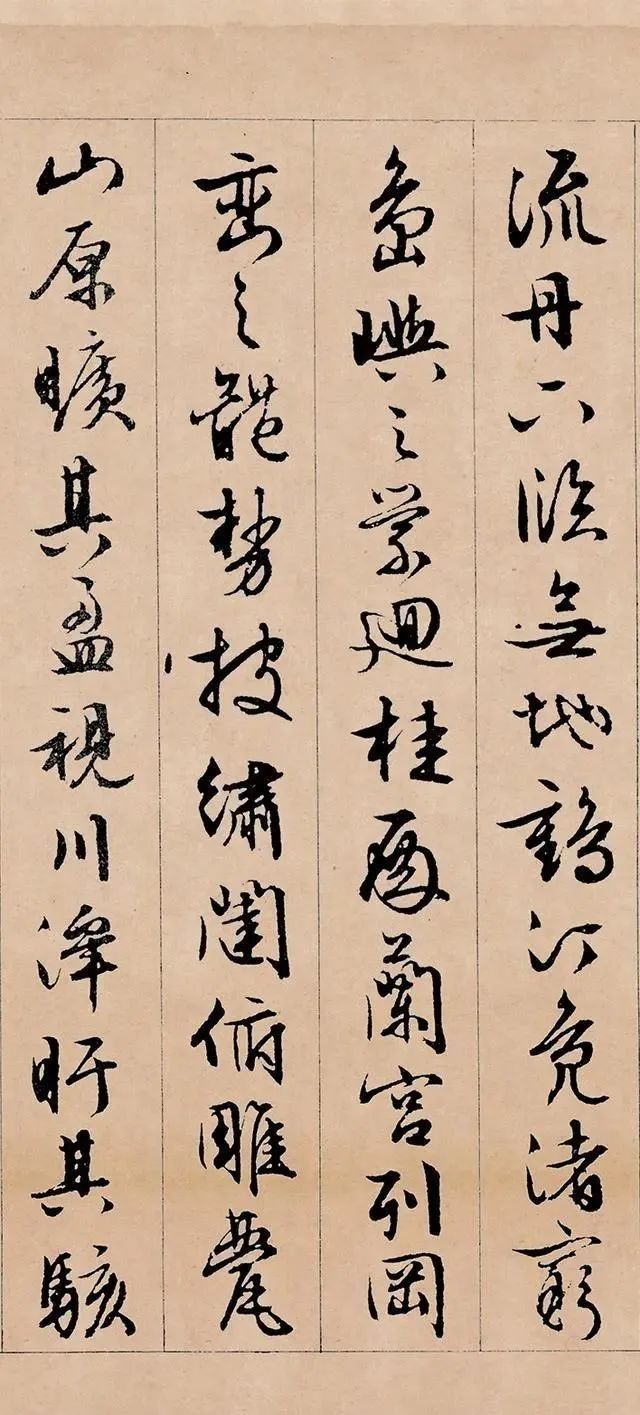 流丹下臨無地鶴汀鳧渚窮
島嶼之縈廻桂殿蘭宮列岡
巒之體勢披繡闥俯雕甍
山原曠其盈視川澤盱其駭